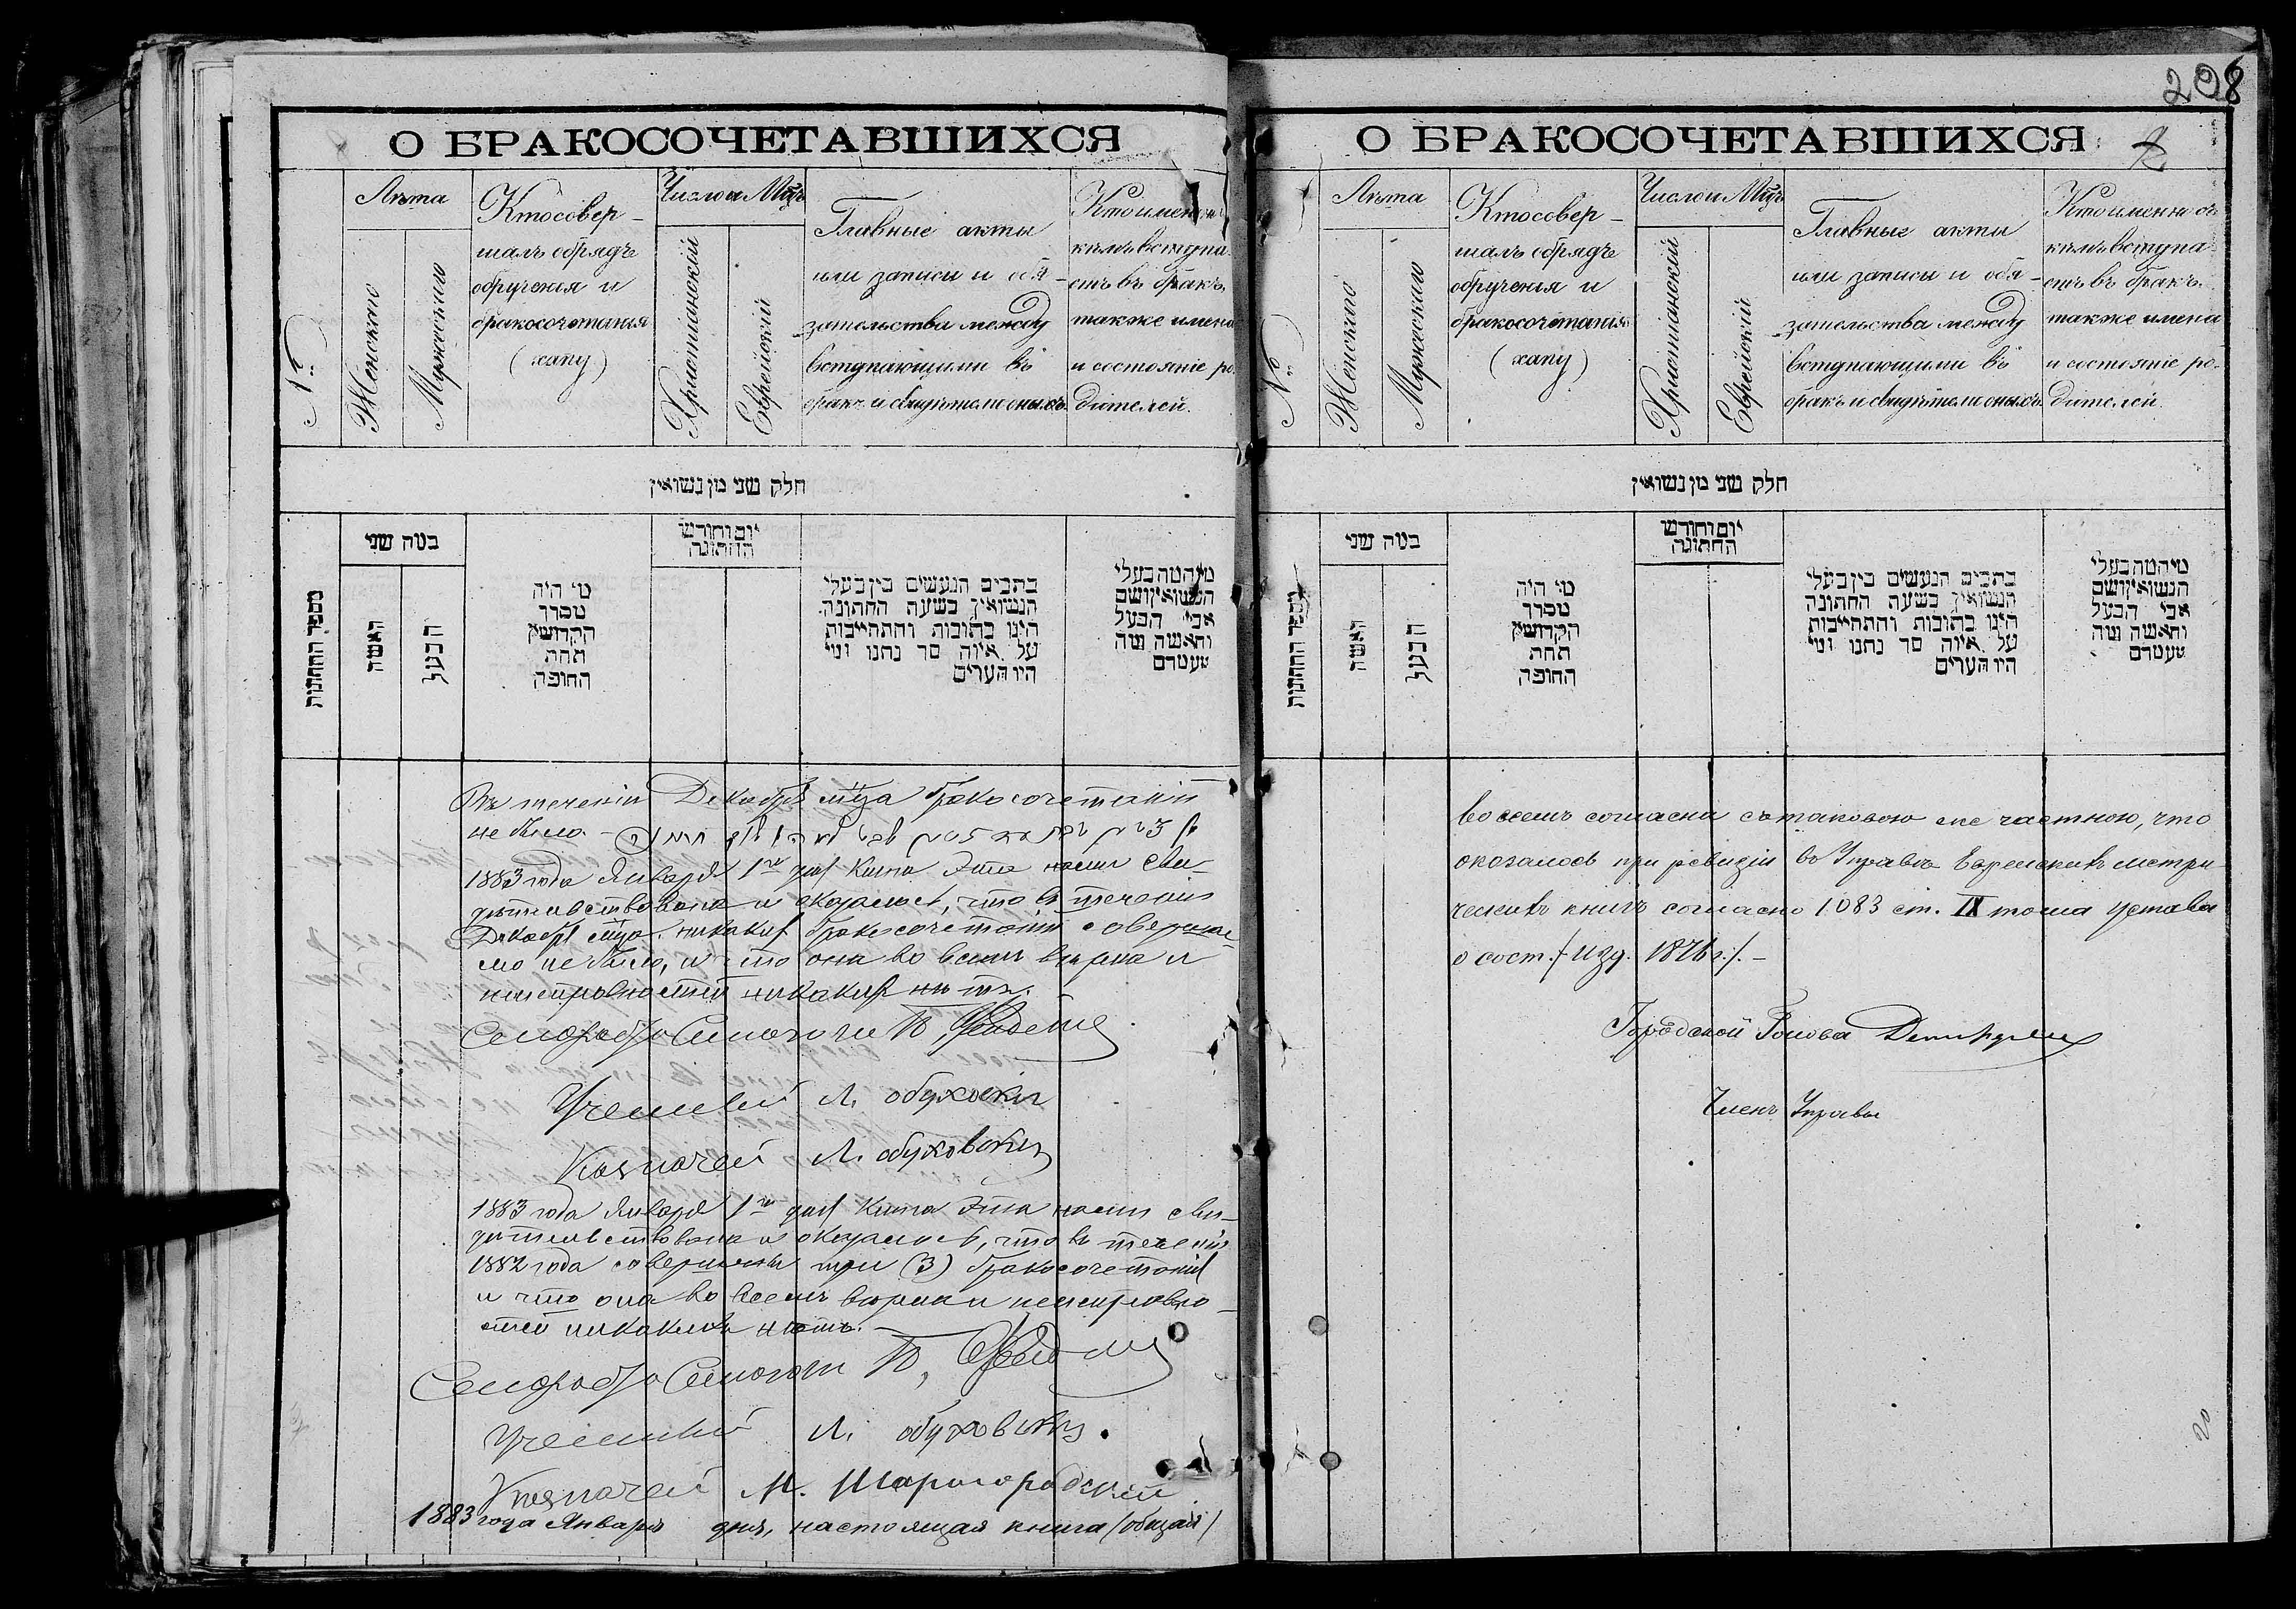 208
О БРАКОСОЧЕТАВШИХСЯ
№
Лѣта
Женскаго
Мужескаго
Кто совер-
шалъ обрядъ
обрученія и
бракосочетанія
(хапу)
Число и Мѣц.
Христіанскій
Еврейскій
Главные акты
или записи и обя-
зательства между
вступающими въ
бракъ и свидѣтели оныхъ
Кто именно съ
кѣмъ вступа
етъ въ бракъ.
также имена
и состояніе ро-
дителей.
חלק שני מן נשואין
מספר החתונות
במה שני
האשה
הבעל
מי היה
מסדר
הקדושין
תחת
החופה
יום וחודש
החתונה
כתבים הנעשים בין בעלי
הנשואין בשעת החתונה
היגו כתובות והתחייבות
על איזה סך נתנו ומי
היו העדים
מי המה בעלי
הנשואין ושם
אבי הבעל
והאשה ומה
מעמדם
Въ теченіи Декабря мѣца бракосочетаній
не было. -
1883 года Января 1го дня Книга Эта нами сви-
дѣтельствована и оказалось, что въ теченіи
Декабря мѣца никакихъ бракосочетаній соверша-
мо не было, и что она во всемъ вѣрна и
неисправностей никакихъ нѣтъ.
Ученый Л. Обуховски
Казначей Л. Обуховски
1883 года Января 1го дня Книга Эта нами сви-
дѣтельствована и оказалось, что въ теченіи
1882 года совершены три (3) бракосочетанія
и что она во всемъ вѣрна и неисправно-
стей никакихъ нѣтъ. -
Ученый Л. Обуховски.
Казначей М. Шаргородскій
1883 года Января дня, настоящая книга /общая/
О БРАКОСОЧЕТАВШИХСЯ
№
Лѣта
Женскаго
Мужескаго
Кто совер-
шалъ обрядъ
обрученія и
бракосочетанія
(хапу)
Число и Мѣц.
Христіанскій
Еврейскій
Главные акты
или записи и обя-
зательства между
вступающими въ
бракъ и свидѣтели оныхъ
Кто именно съ
кѣмъ вступа
етъ въ бракъ.
также имена
и состояніе ро-
дителей.
חלק שני מן נשואין
מספר החתונות
במה שני
האשה
הבעל
מי היה
מסדר
הקדושין
תחת
החופה
יום וחודש
החתונה
כתבים הנעשים בין בעלי
הנשואין בשעת החתונה
היגו כתובות והתחייבות
על איזה סך נתנו ומי
היו העדים
מי המה בעלי
הנשואין ושם
אבי הבעל
והאשה ומה
מעמדם
во всемъ согласна съ таковою же частною, что
оказалось при ревизіи въ Управѣ Еврейскихъ метри
ческихъ книгъ согласно 1083 ст. IX тома Устава
о сост. /изд. 1876 г./. -
Городской Голова
Членъ Управы
20